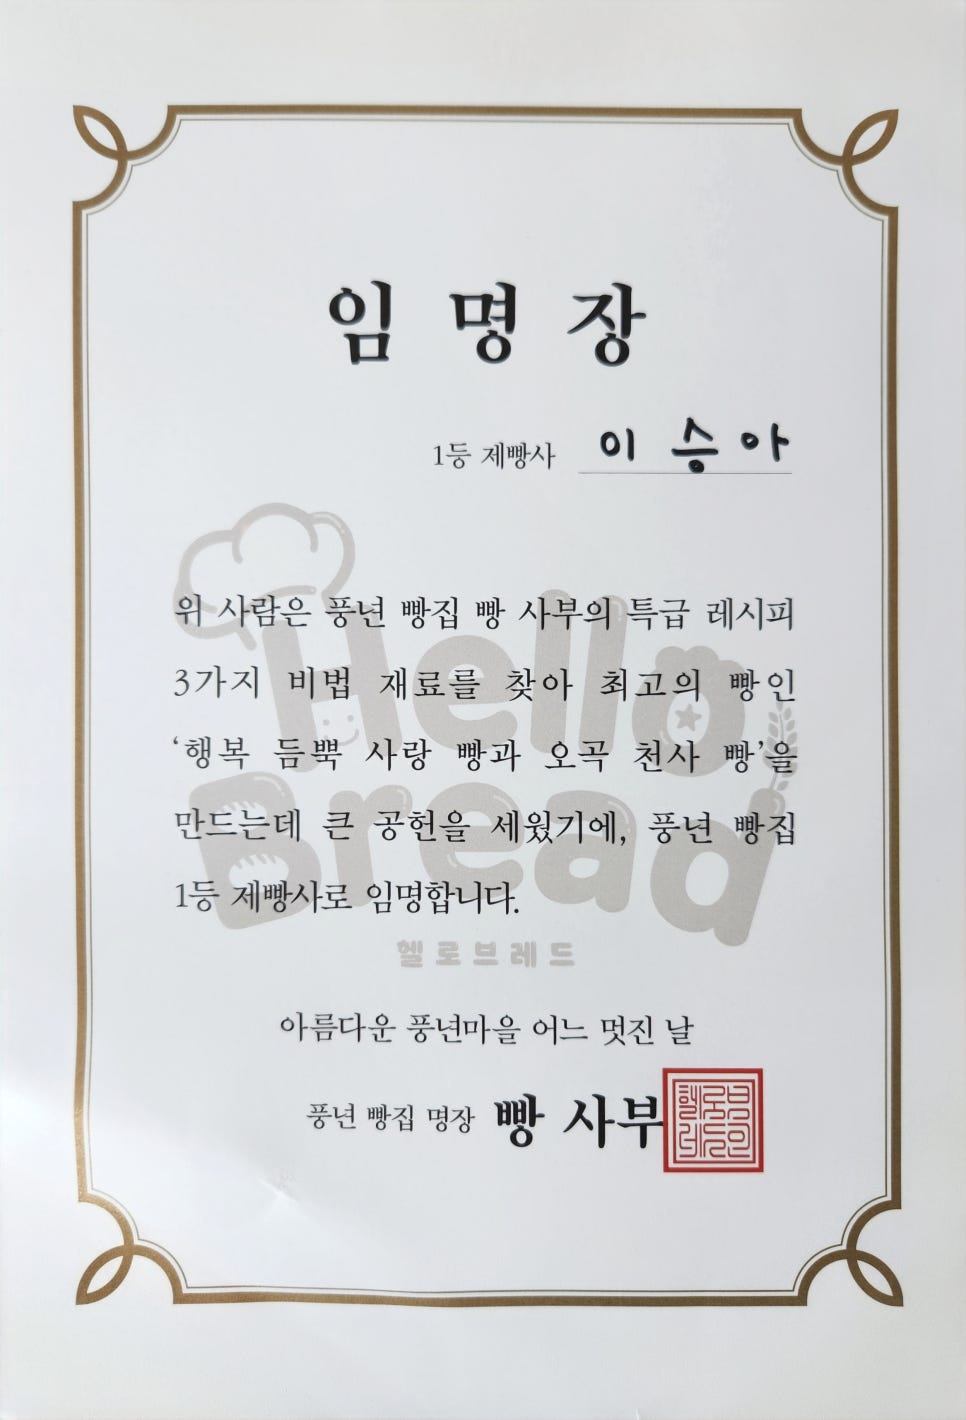 임 명 장
1등 제빵사 이승아
위 사람은 풍년 빵집 빵 사부의 특급 레시피
3가지 비법 재료를 찾아 최고의 빵인
‘행복 듬뿍 사랑 빵과 오곡 천사 빵’을
만드는데 큰 공헌을 세웠기에, 풍년 빵집
1등 제빵사로 임명합니다.
Hello
Bread
헬로브레드
아름다운 풍년마을 어느 멋진 날
풍년 빵집 명장 빵 사부